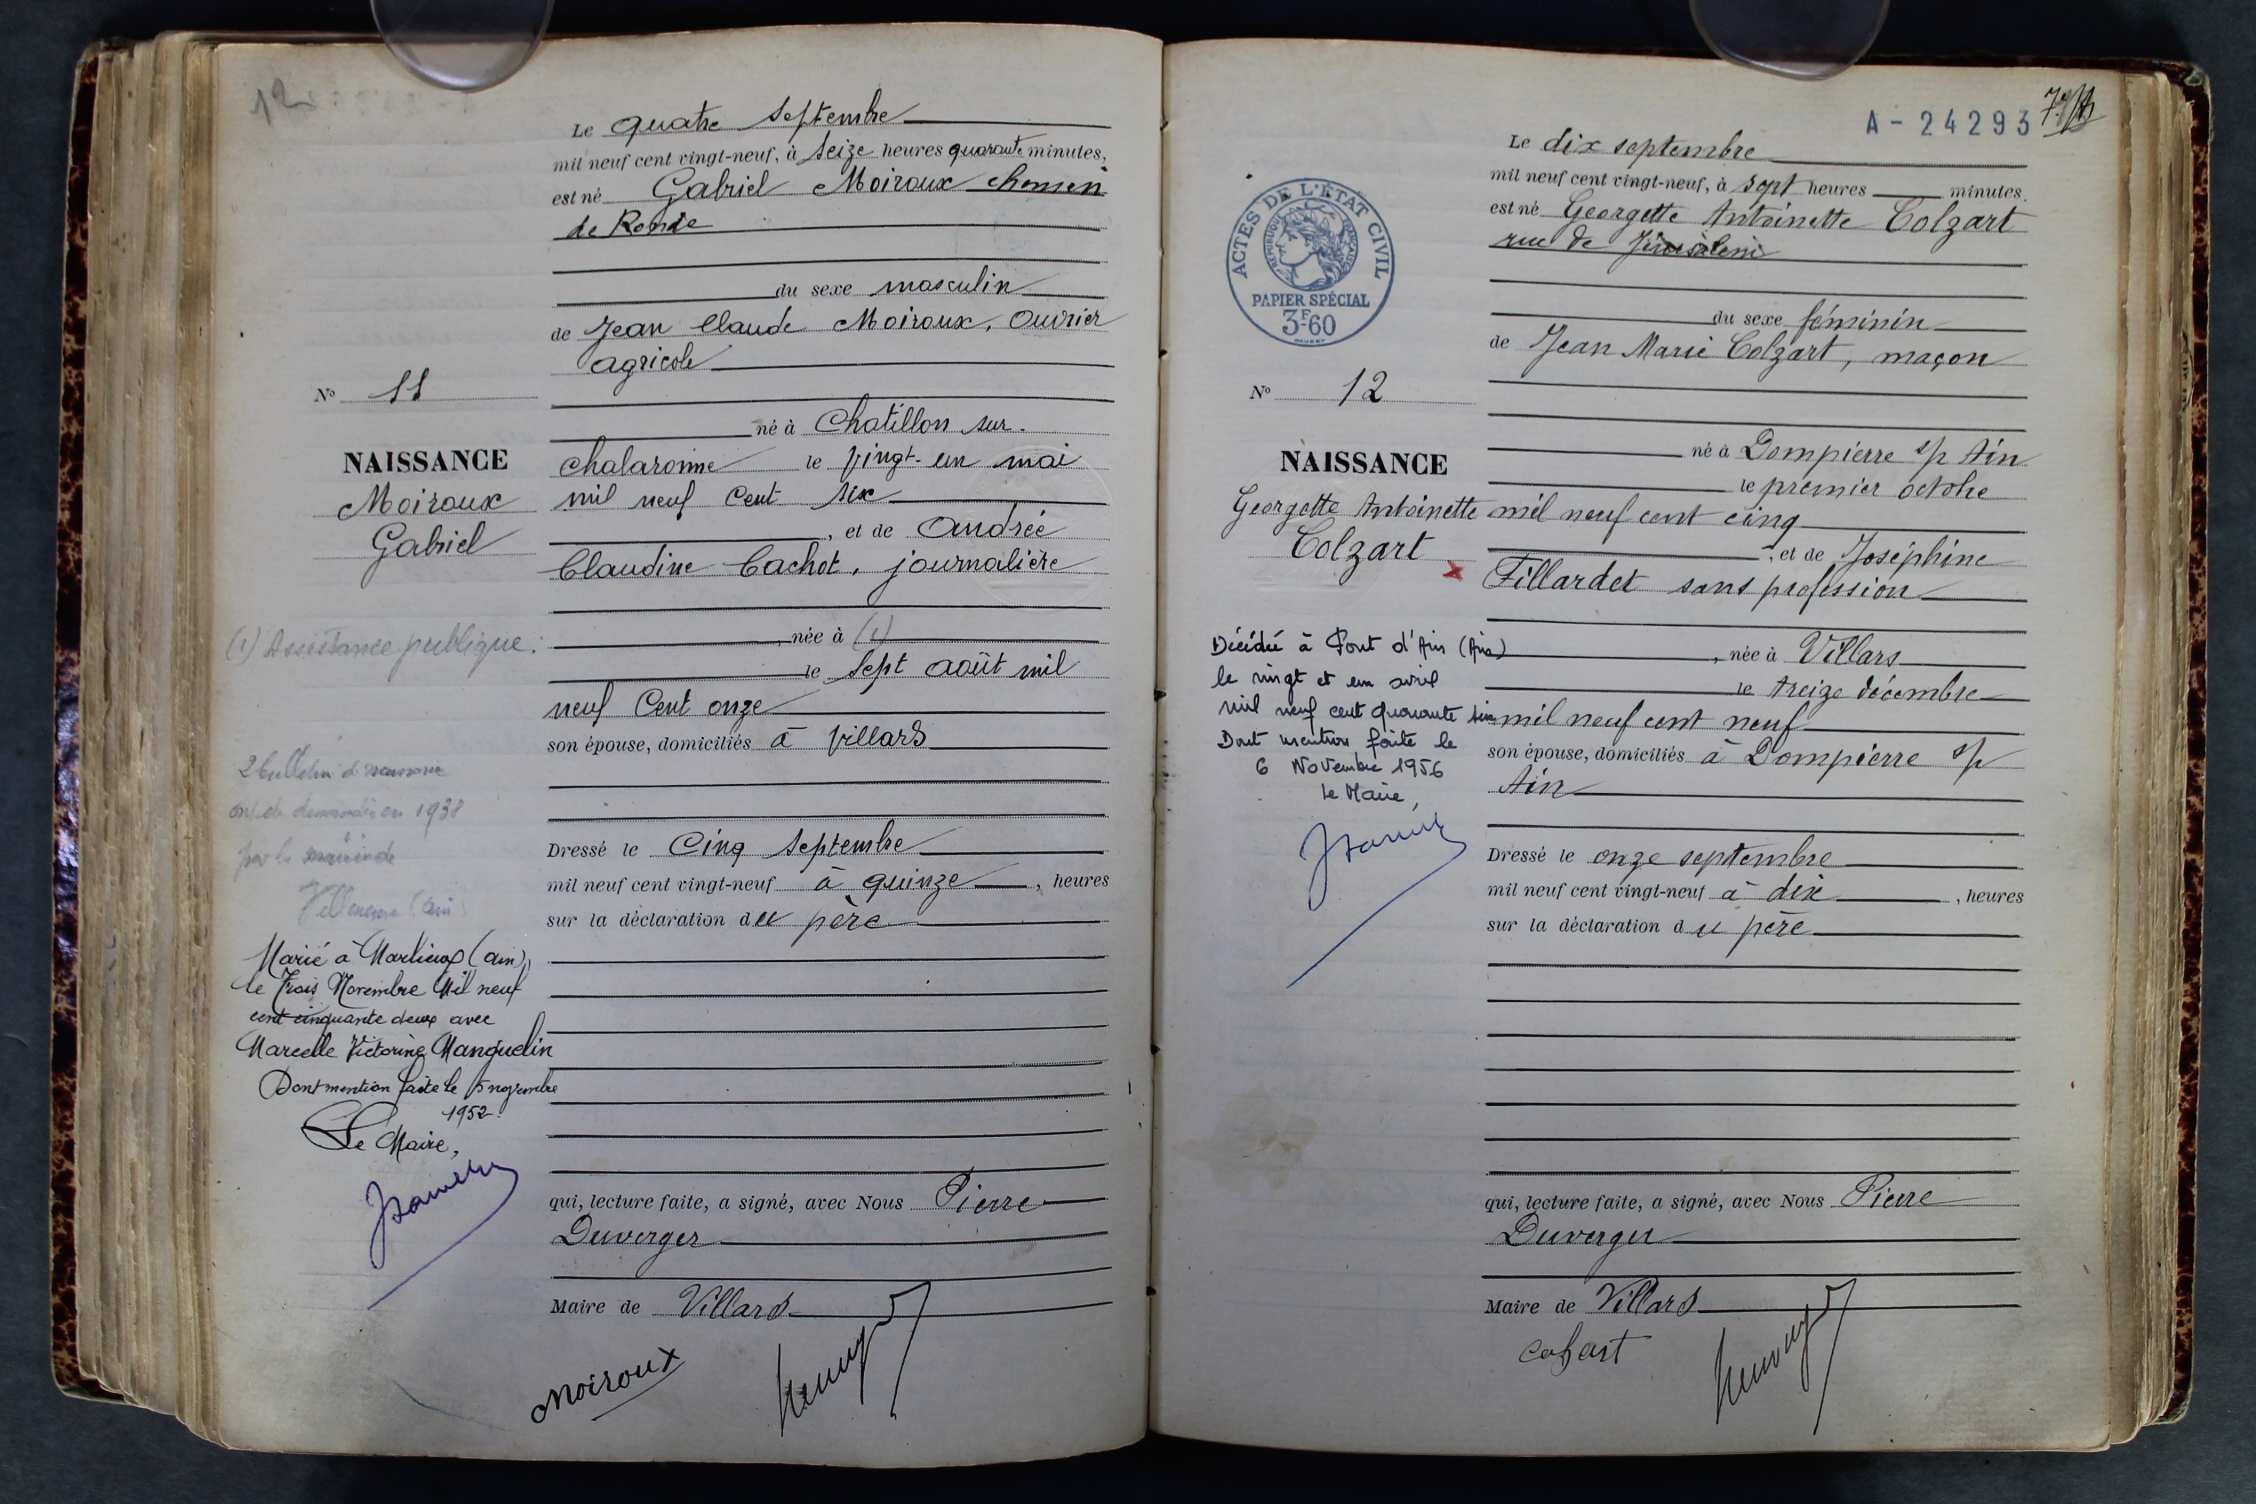 12
Le quatre septembre
mil neuf cent vingt-neuf, à seize heures quarante minutes,
est né Gabriel Moiroux chemin
de Ronde
du sexe masculin
de Jean Claude Moiroux, ouvrier
agricole
No 11
né à Chatillon sur-
NAISSANCE
chalaronne le vingt-un mai
Moiroux
mil neuf cent six
Gabriel
, et de Andrée
Claudine Cachot, journalière
(1) Assistance publique.
, née à (1)
le sept août mil
neuf cent onze
son épouse, domiciliés à Villars
2 bulletin de naissance
ont été demandés en 1938
par la mairie de
(Ain)
Dressé le cinq septembre
mil neuf cent vingt-neuf à quinze , heures
sur la déclaration du père
Marié à Marlieux (ain),
le Trois Novembre Mil neuf
cent cinquante deux avec
Marcelle Victorine Manguelin
Dont mention faite le 5 novembre
1952.
Le Maire,
qui, lecture faite, a signé, avec Nous Pierre
Duverger
Maire de Villars
Moiroux
A - 24293
Le dix septembre
mil neuf cent vingt-neuf, à sept heures minutes.
est né Georgette Antoinette Colzart
rue de Jérusalem
ACTES DE L'ÉTAT CIVIL
RÉPUBLIQUE FRANÇAISE
PAPIER SPÉCIAL
3F60
du sexe féminin
de Jean Marie Colzart, maçon
No 12
né à Dompierre s/r Ain
NAISSANCE
le premier octobre
Georgette Antoinette
mil neuf cent cinq
Colzart
, et de Joséphine
Fillardet sans profession
Décédée à Pont d'Ain (Ain)
le vingt et un avril
mil neuf cent quarante six
Dont mention faite le
6 Novembre 1956
Le Maire,
, née à Villars
le treize décembre
mil neuf cent neuf
son épouse, domiciliés à Dompierre s/r
Ain
Dressé le onze septembre
mil neuf cent vingt-neuf à dix , heures
sur la déclaration du père
qui, lecture faite, a signé, avec Nous Pierre
Duverger
Maire de Villars
Colzart